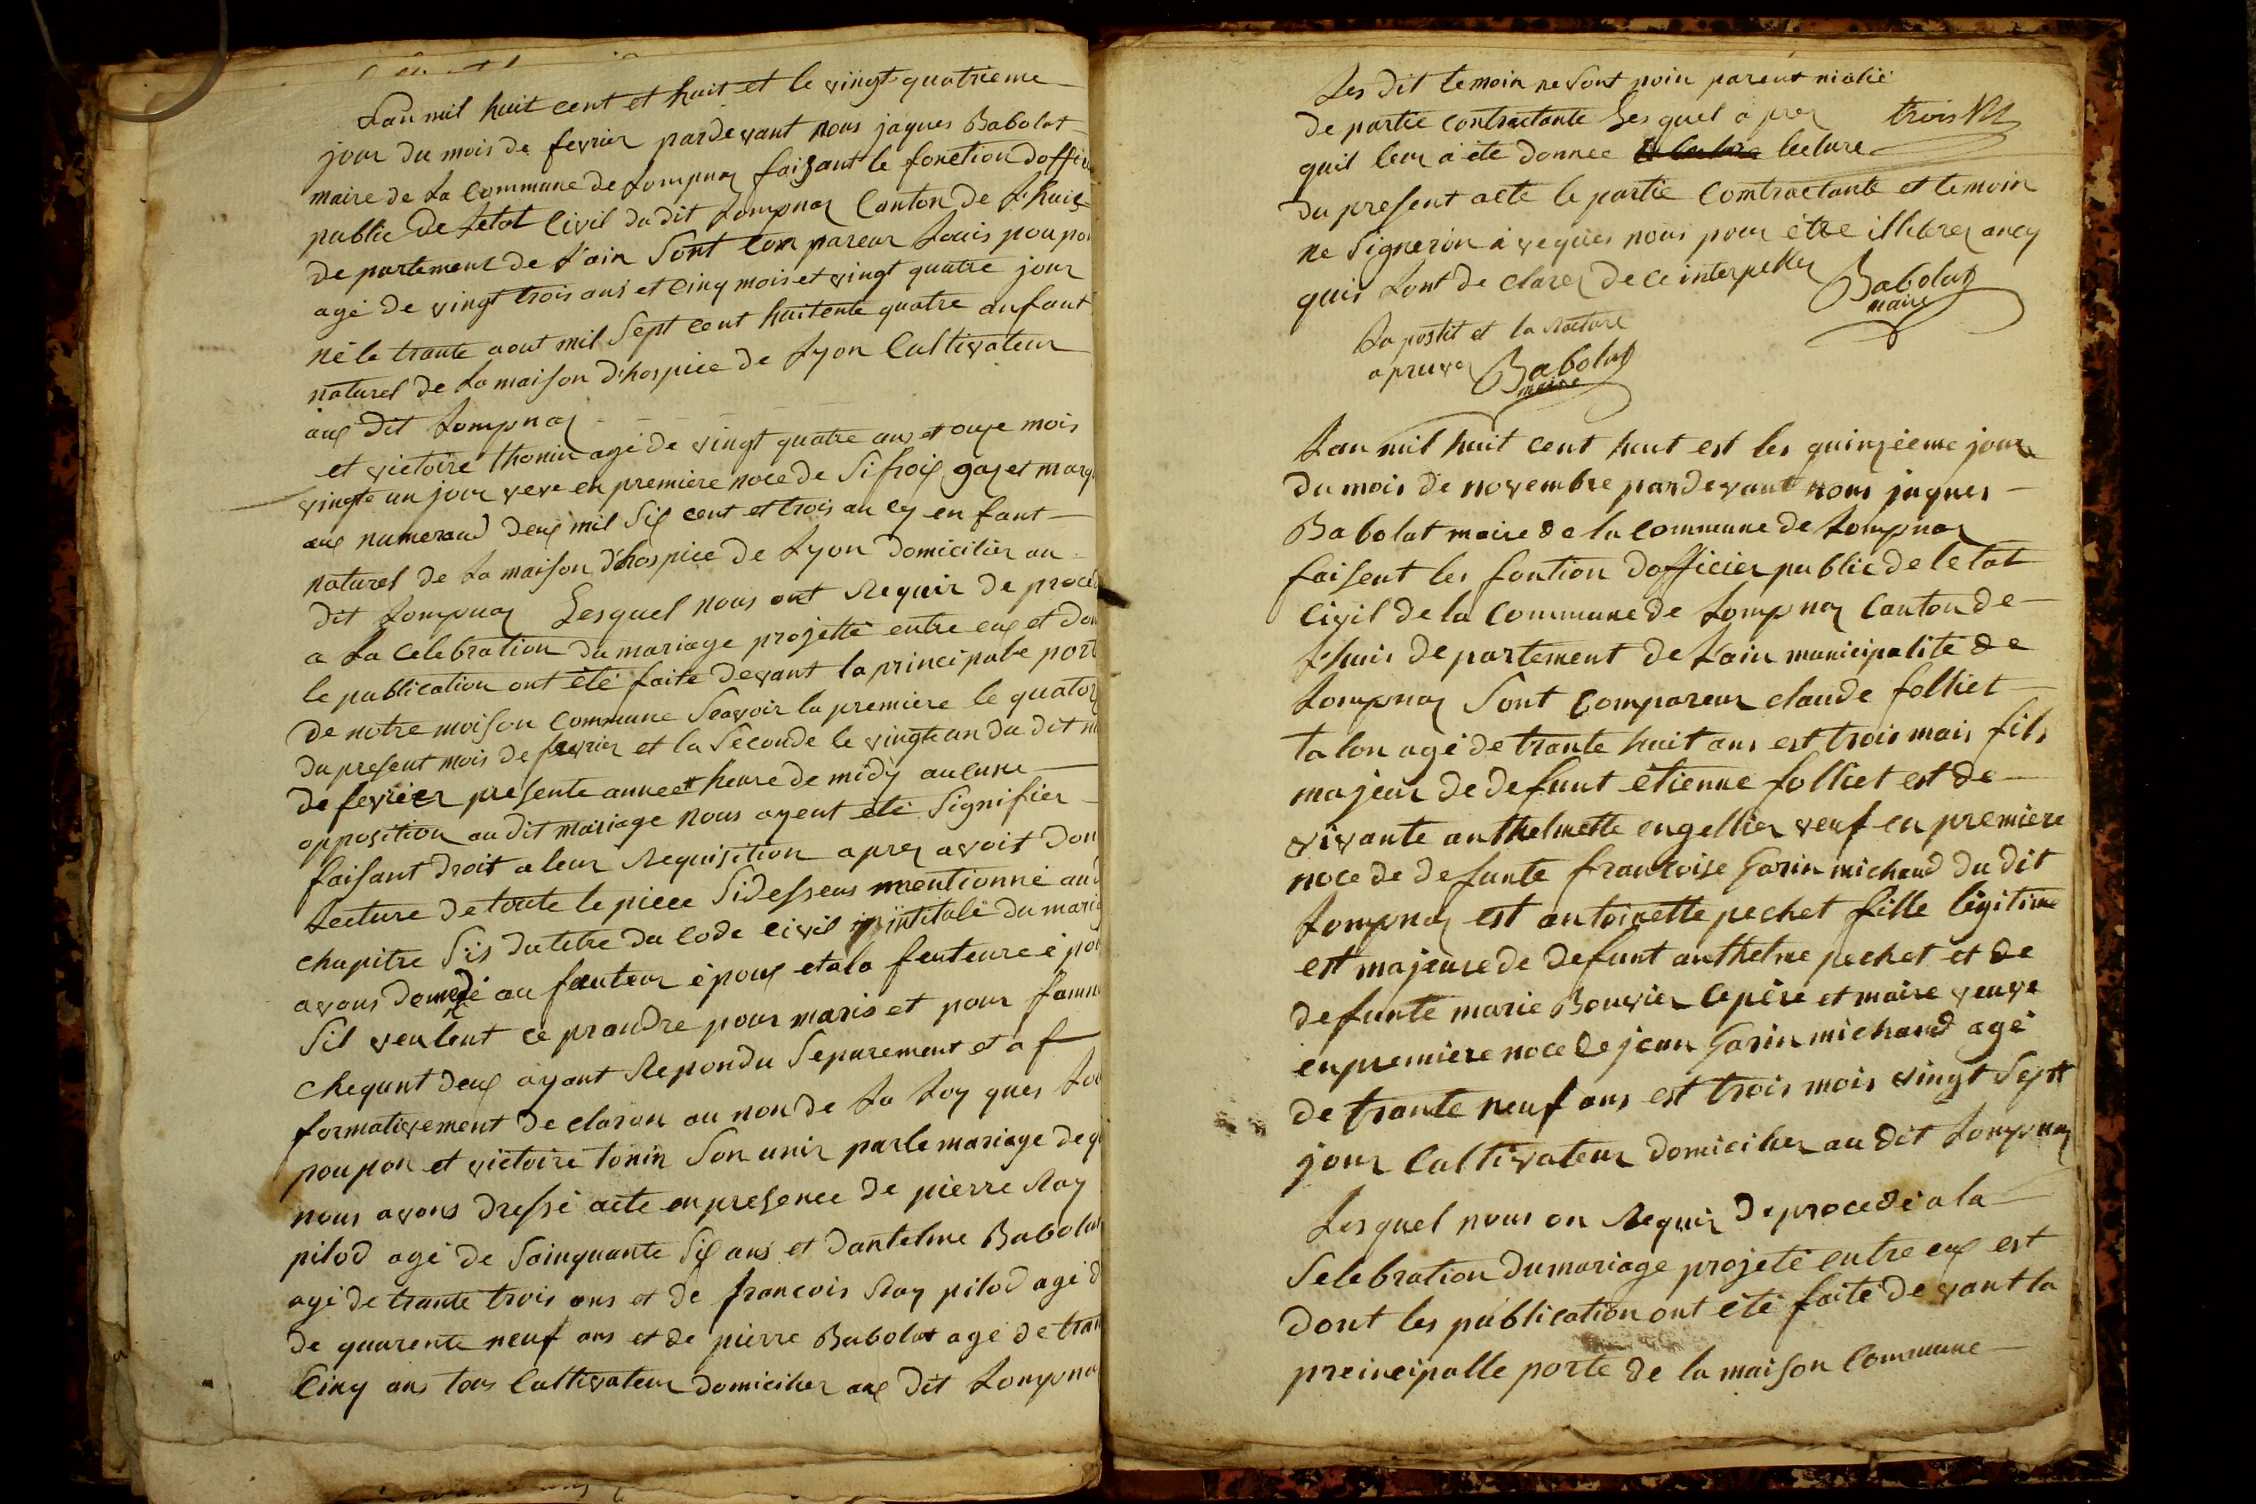 Lan mil huit cent et huit et le vingt quatrieme
jour du mois de fevrier pardevant nous jaques Babolat
maire de La Commune de Lompnaz faizant le fonction doffi
public De Letat Civil du dit Lompnaz Canton de Lhuis
de partement de Lain Sont Com pareur Louis poupon
agé de vingt trois ans et Cinq mois et vingt quatre jour
né le trante aout mil Sept cent huitente quatre anfant
naturel de La maison d'hospice de Lyon Cultivateur
aux dit Lompnaz
et victoire thonin agé de vingt quatre ans et onze mois
vingte un jour veve en premiere noce de gay et
aux numeraud deux mil Six cent et trois an en fant
naturel de La maison d'hospice de Lyon domicilier au
dit Lompnaz Lesquel nous ont Requir de proced
a La Celebration du mariage projetté entre eux et don
le publication ont été faite devant la principale port
de notre maison Commune Scavoir la premiere le quator
du present mois de fevrier et la Seconde le vingte un du dit m
de fevrier presente annee et heure de midy aucune
opposition au dit mariage nous ayent eté Signifier
faisant droit a leur Requisition aprez avoit don
Lecture de toute le piece Sidesseus mentionné au
chapitre Sis du titre du Code Civil intitulé du maria
avons demendé au feuteur époux et a la feuteure épou
Sil veulent ce prandre pour maris et pour famme
chequnt deux ayant Repondu Separement et a f
formativement de claron au non de La Loy ques Lou
poupon et victoire tonin Son unir par le mariage de q
nous avons dressé acte en presence de pierre Ray
pilod agé de Sainquante Six ans et dantelme Babolat
agé de trante trois ans et de francois Ray pilod agé d
de quarente neuf ans et de pierre Babolat agé de tran
Cinq ans tous Cultivateur domicilier aux dit Lompna
Les dit temoin ne Sont poin parent ni alié
de partie contractante Les quel a prez
trois
quil leur a été donnee lecture
du present acte le partie Comtractante et temoin
ne Signerin aveques nous pour étre illiterez
quis Lont de clarez de ce interpeller
Babolat
maire
La postit et la Rature
apruvez Babolat
maire
Lan mil huit cent huit est les quinzieeme jour
du mois de novembre pardevant nous jaques
Babolat maire de la Commune de Lompnaz
faisent les fontion dofficier public de letat
Civil de la Commune de Lompnaz Canton de
Lhuis departement de Lain municipalité de
Lompnaz Sont Compareur claude folliet
talon agé de trante huit ans est trois mais fils
majeur de defunt etienne folliet est de
vivante anthelmette engellier veuf en premiere
noce de defunte francoise Garin michaud du dit
Lompnaz est antoinette pechet fille légitime
est majeure de defunt anthelme pechet et de
defunte marie Bouvier cepére et maire veuve
en premiere noce de jean Garin michaud agé
de trante neuf ans est trois mois vingt Sept
jour Caltivateur domicilier au dit Lompnaz
Lesquel nous on Requir de procedé a la
Selebration du mariage projeté entre eux est
dont les publication ont été faite devant la
preincipalle porte de la maison Commune